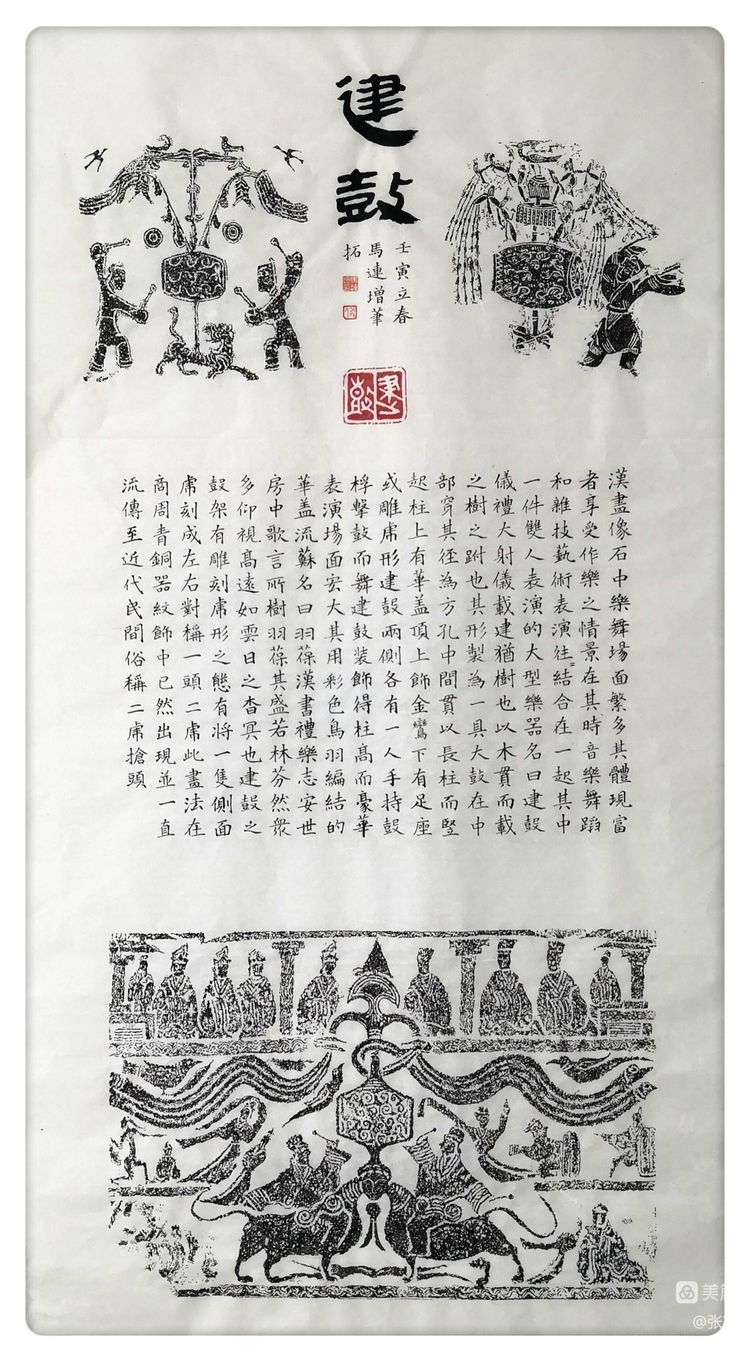 建鼓
壬寅立春
馬連增筆
拓
建鼓
漢畫像石中樂舞場面繁多其體現富
者享受作樂之情景在其時音樂舞蹈
和雜技藝術表演往=結合在一起其中
一件雙人表演的大型樂器名曰建鼓
儀禮大射儀載建猶樹也以木貫而載
之樹之跗也其形製為一具大鼓在中
部穿其徑為方孔中間貫以長柱而竪
起柱上有華盖頂上飾金鸞下有足座
或雕虎形建鼓兩側各有一人手持鼓
桴擊鼓而舞建鼓装飾得柱髙而豪華
表演場面宏大其用彩色鳥羽編結的
華盖流蘇名曰羽葆漢書禮樂志安世
房中歌言所樹羽葆其盛若林芬然衆
多仰視髙遠如雲日之杳冥也建鼓之
鼓架有雕刻虎形之態有將一隻側面
虎刻成左右對稱一頭二虎此畫法在
商周青銅器紋飾中已然出現並一直
流傳至近代民間俗稱二虎搶頭
美
@张